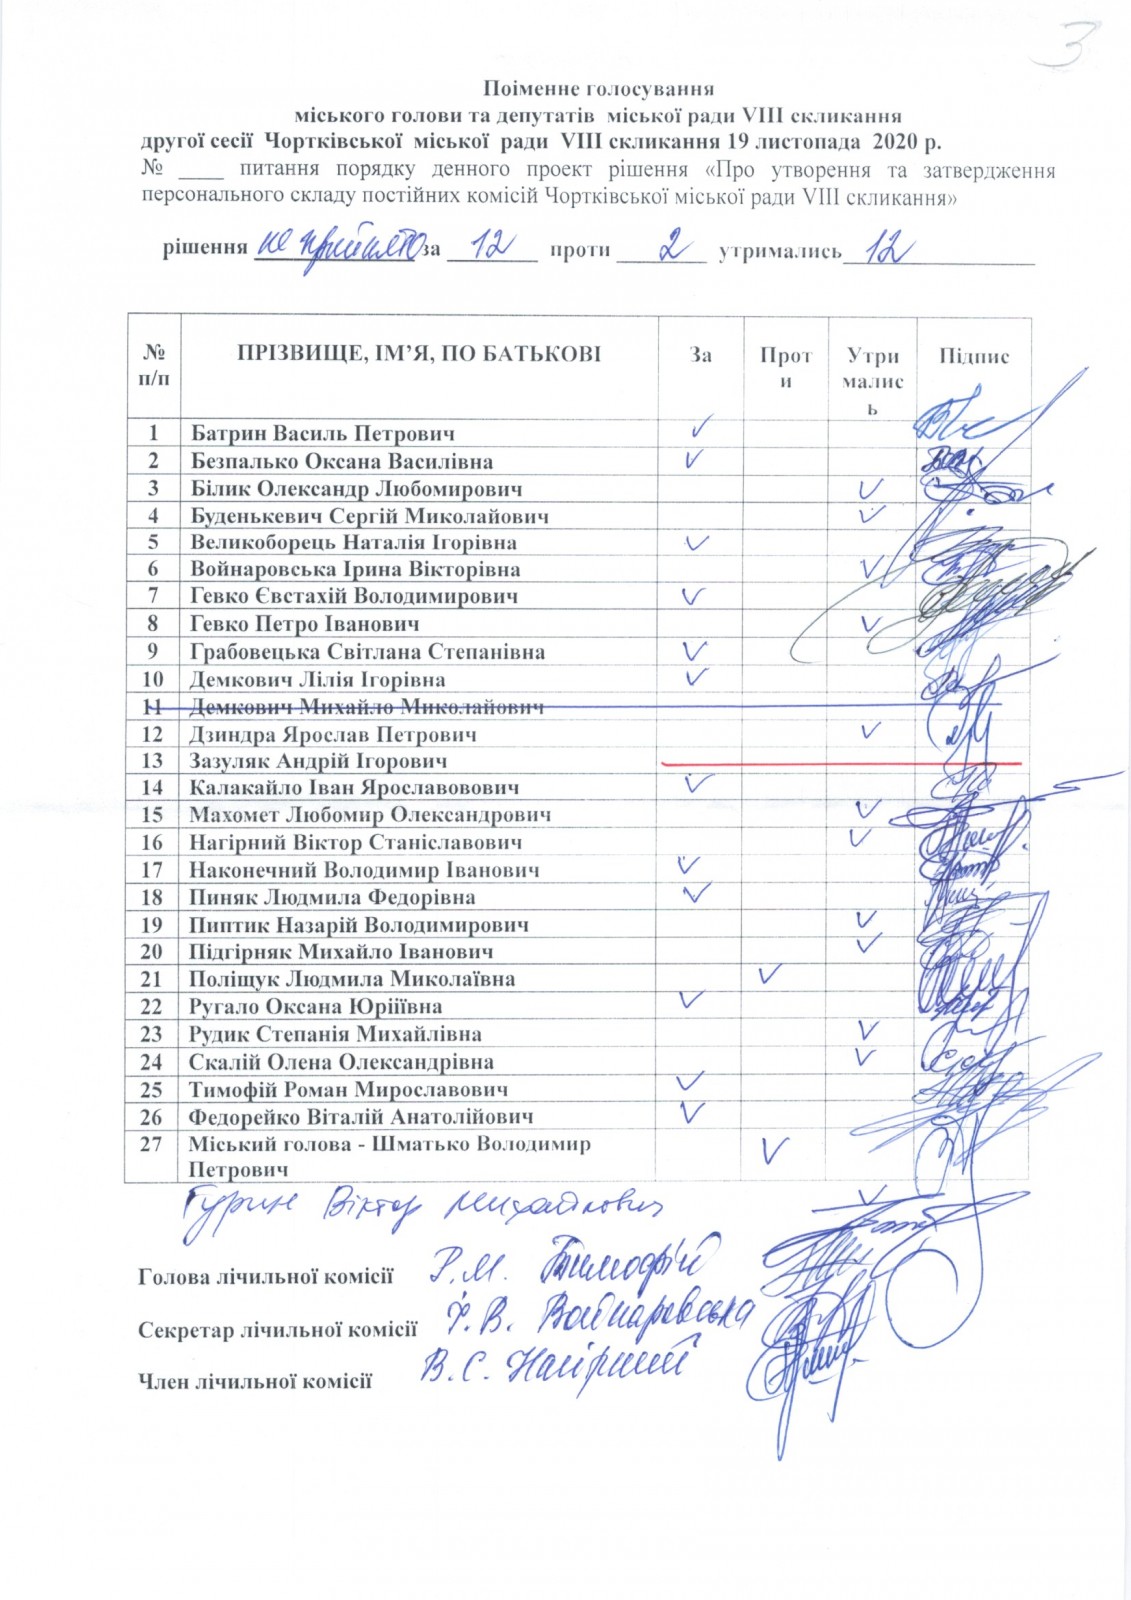 3
Поіменне голосування
міського голови та депутатів міської ради VIII скликання
другої сесії Чортківської міської ради VIII скликання 19 листопада 2020 р.
№ ____ питання порядку денного проект рішення «Про утворення та затвердження
персонального складу постійних комісій Чортківської міської ради VIII скликання»
рішення не прийнято за 12 проти 2 утримались 12
№ п/п ПРІЗВИЩЕ, ІМ’Я, ПО БАТЬКОВІ За Проти Утримались Підпис
1 Батрин Василь Петрович ✓
2 Безпалько Оксана Василівна ✓
3 Білик Олександр Любомирович ✓
4 Буденькевич Сергій Миколайович ✓
5 Великоборець Наталія Ігорівна ✓
6 Войнаровська Ірина Вікторівна ✓
7 Гевко Євстахій Володимирович ✓
8 Гевко Петро Іванович ✓
9 Грабовецька Світлана Степанівна ✓
10 Демкович Лілія Ігорівна ✓
11 Демкович Михайло Миколайович
12 Дзиндра Ярослав Петрович ✓
13 Зазуляк Андрій Ігорович
14 Калакайло Іван Ярославовович ✓
15 Махомет Любомир Олександрович ✓
16 Нагірний Віктор Станіславович ✓
17 Наконечний Володимир Іванович ✓
18 Пиняк Людмила Федорівна ✓
19 Пиптик Назарій Володимирович ✓
20 Підгірняк Михайло Іванович ✓
21 Поліщук Людмила Миколаївна ✓
22 Ругало Оксана Юрііївна ✓
23 Рудик Степанія Михайлівна ✓
24 Скалій Олена Олександрівна ✓
25 Тимофій Роман Мирославович ✓
26 Федорейко Віталій Анатолійович ✓
27 Міський голова - Шматько Володимир
Петрович ✓
Гурин Віктор Михайлович ✓
Голова лічильної комісії Р.М. Тимофій
Секретар лічильної комісії І.В. Войнаровська
Член лічильної комісії В.С. Нагірний